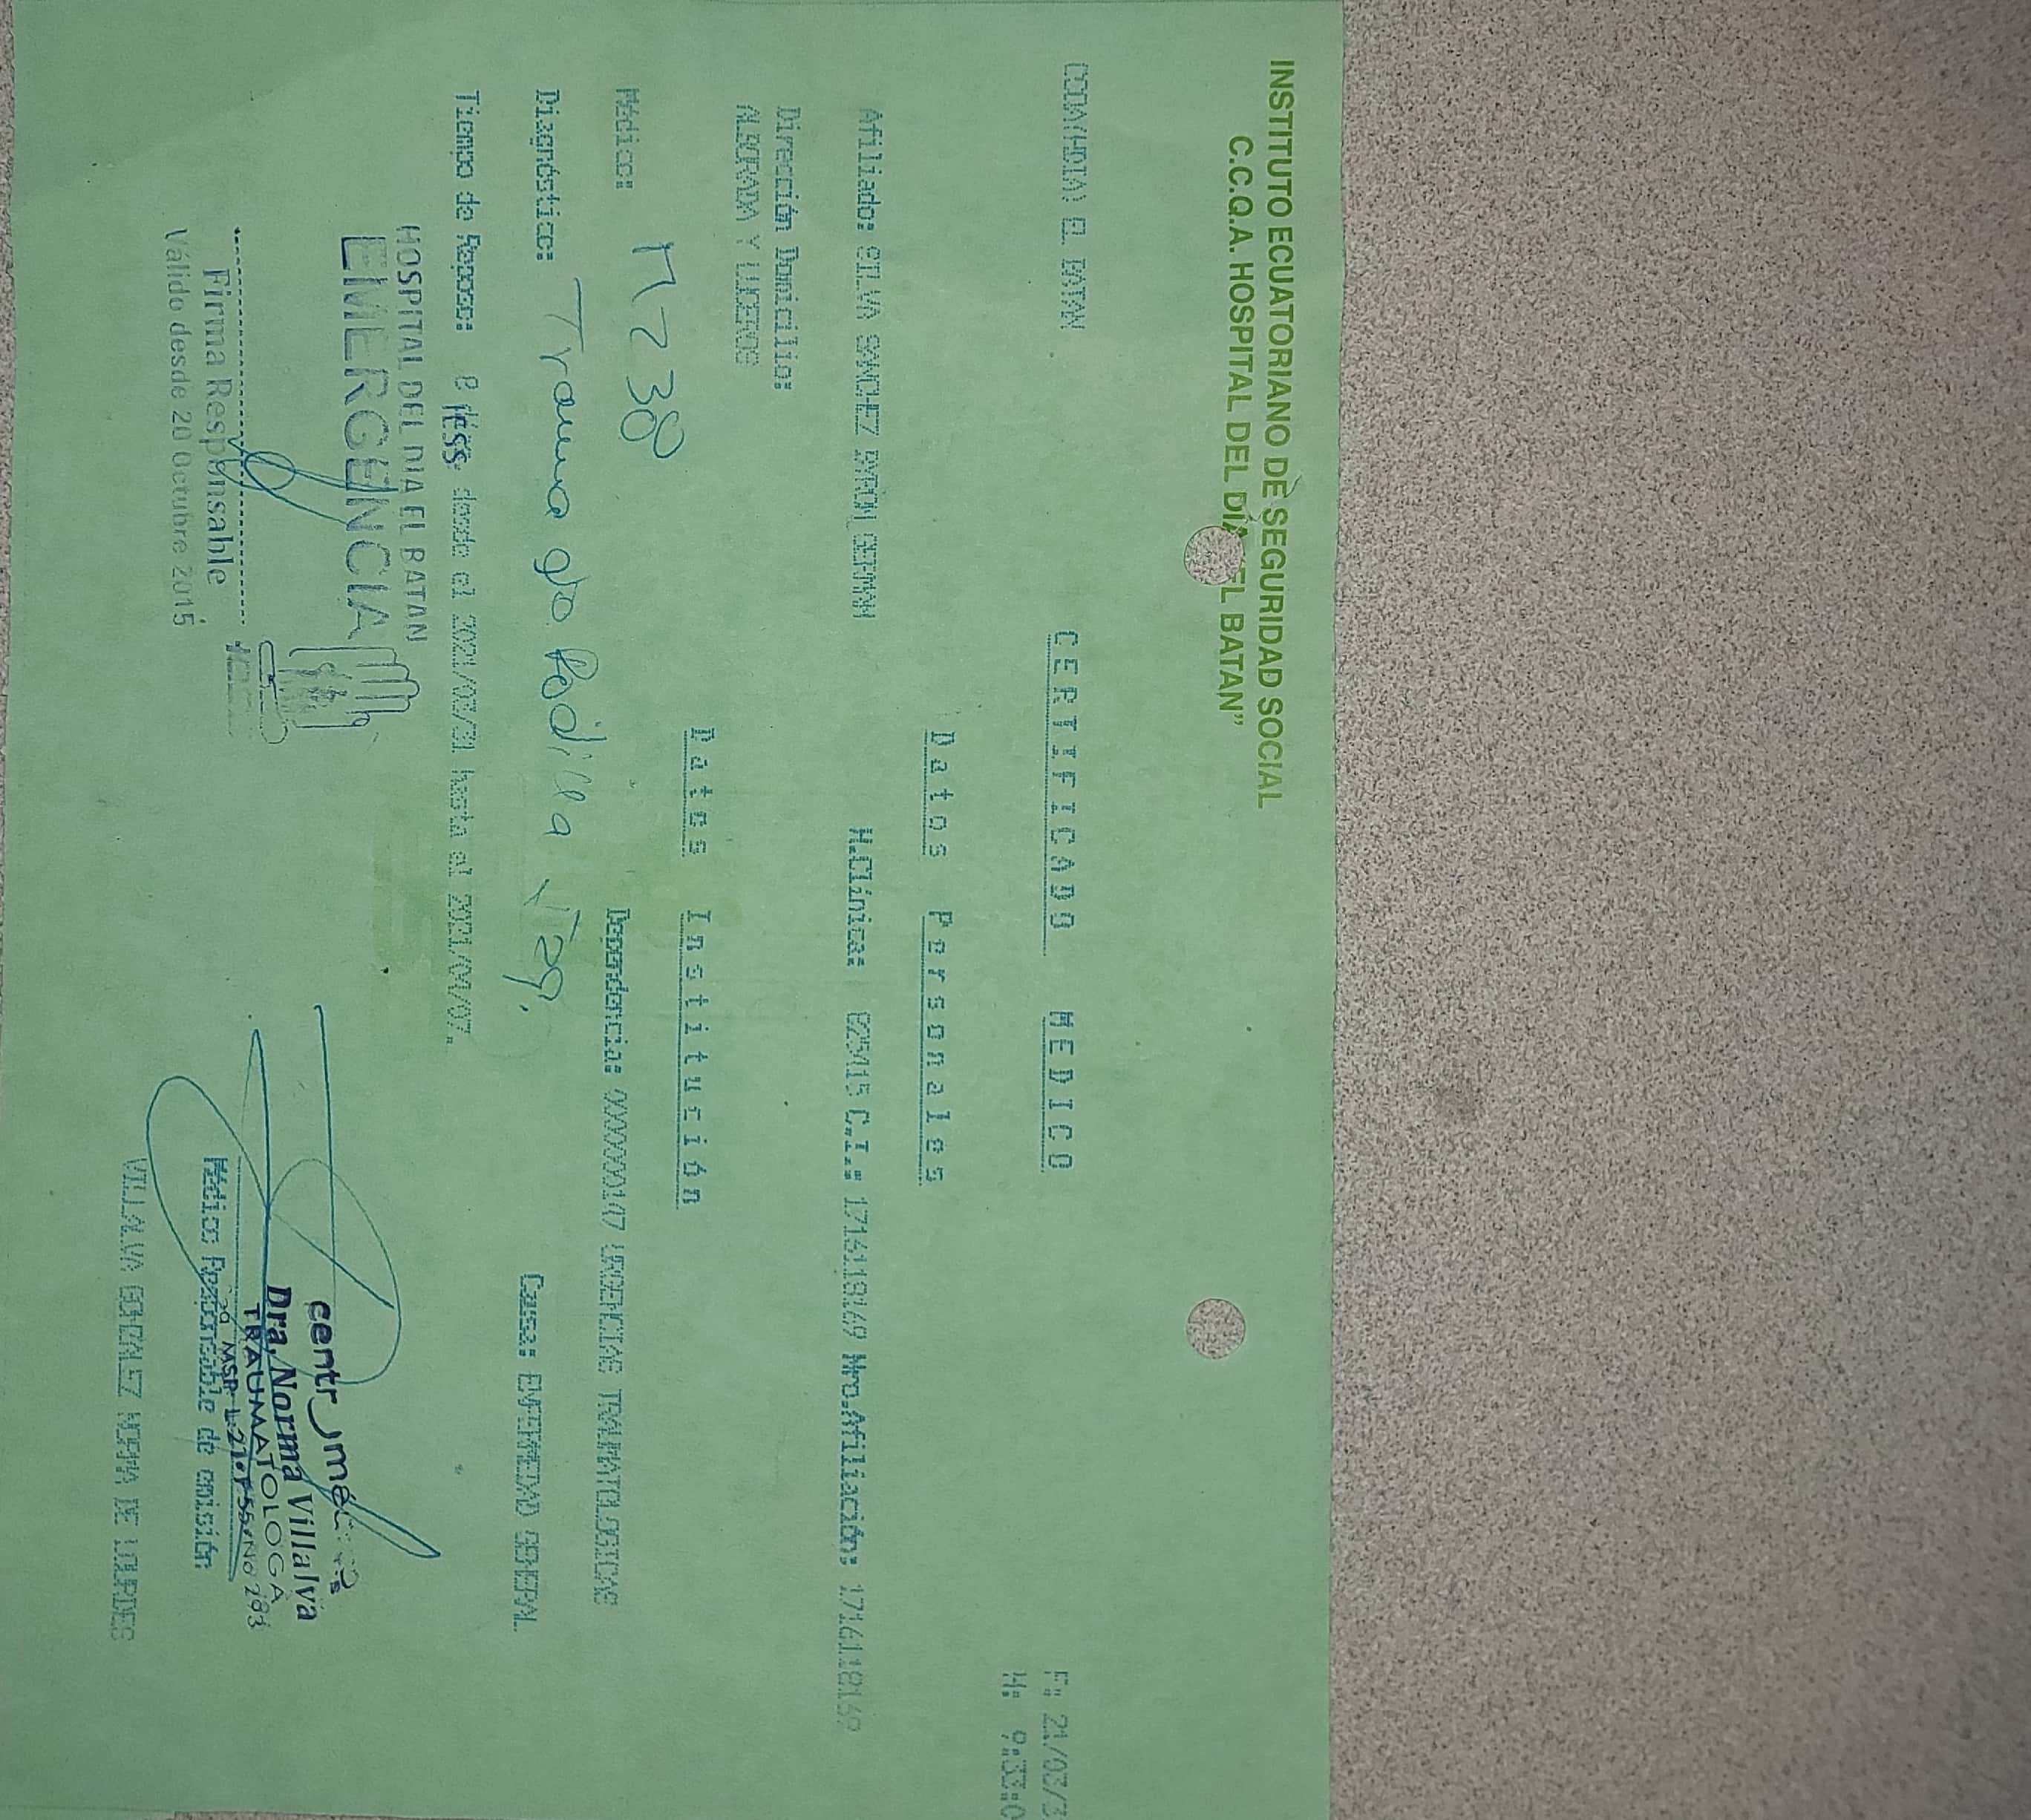 INSTITUTO ECUATORIANO DE SEGURIDAD SOCIAL
C.C.Q.A. HOSPITAL DEL DÍA "EL BATAN"
CCQA(HDIA) EL BATAN
F: 21/03/3
H: 9:33:0
CERTIFICADO MEDICO
Datos Personales
Afiliado: SILVA SANCHEZ BYRON GERMAN H.Clínica: 025415 C.I.: 1716118169 Nro.Afiliación: 1716118169
Dirección Domicilio:
ALBORADA Y LUCEROS
Datos Institución
Médico: MZ38 Dependencia: 0000000147 URGENCIAS TRAUMATOLOGICAS
Diagnóstico: Trauma gdo. Rodilla Izq. Causa: ENFERMEDAD GENERAL
Tiempo de Reposo: 8 desde el 2021/03/31 hasta el 2021/04/07.
IESS
HOSPITAL DEL DIA EL BATAN
EMERGENCIA
Firma Responsable
Válido desde 20 Octubre 2015
Dra. Norma Villalva
TRAUMATOLOGA
Médico Responsable de emisión
VILLALVA GONZALEZ NORMA DE LOURDES